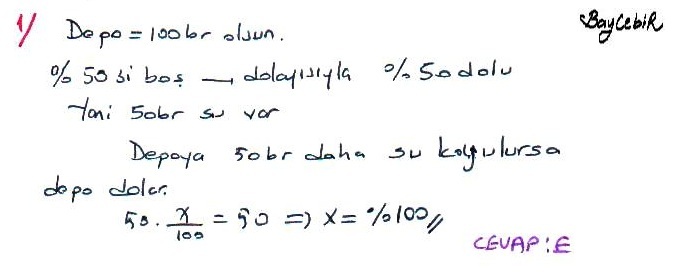 1/ Depo = 100br olsun.
BayCebiR
% 50 si boş → dolayısıyla % 50 dolu
Yani 50br su var
Depoya 50br daha su koyulursa
depo dolar.
50 . x/100 = 50 => x = %100//
CEVAP : E